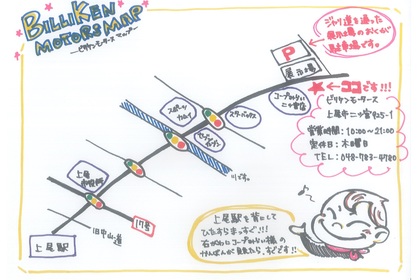 BILLIKEN
MOTORS MAP
ービリケンモータース マップー
ジャリ道を通った
展示場のおくが
駐車場です。
P
展示場
コープみらい
二ツ宮店
← ココです!!!
ビリケンモータース
上尾市二ツ宮925-1
営業時間:10:00~21:00
定休日:木曜日
TEL:048-783-4780
スターバックス
スポーツ
セブン
イレブン
川です。
上尾
市役所
17号
旧中山道
上尾駅
上尾駅を背にして
ひたすらまっすぐ!!!
右がわにコープみらい様の
かんばんが見えたら、すぐです!!